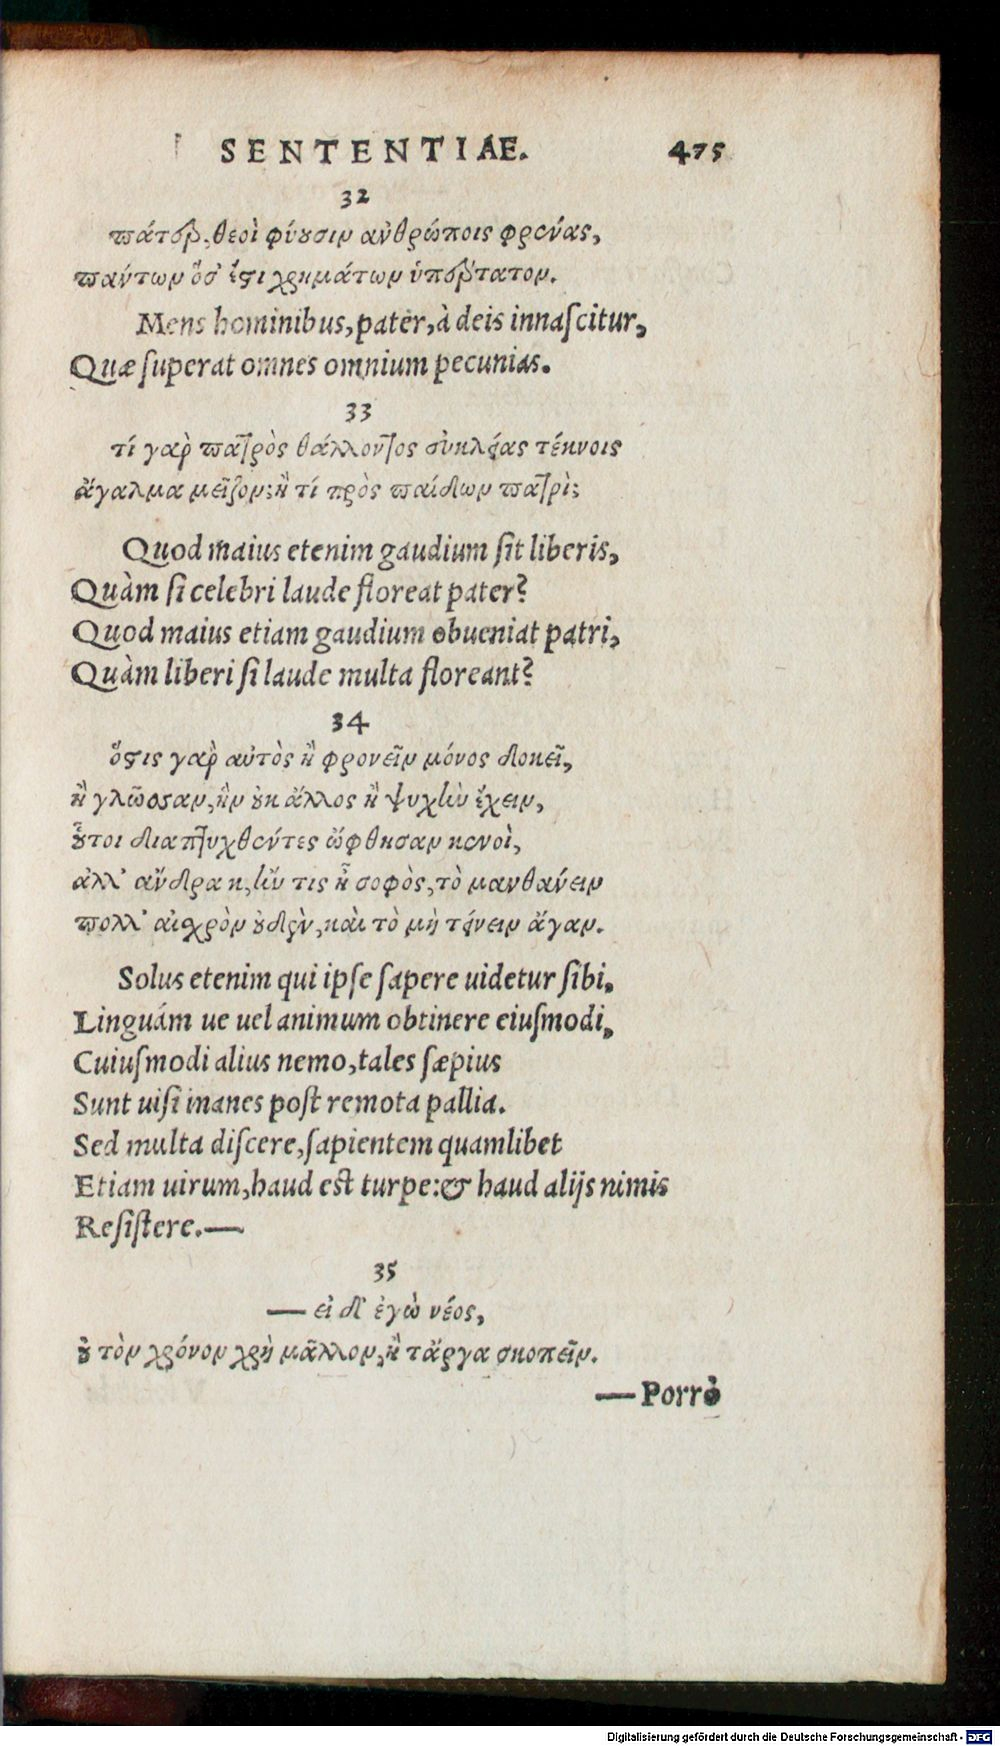 SENTENTIAE. 475
32
πάτερ, θεοὶ φύουσιν ἀνθρώποις φρένας,
πάντων ὅσ' ἐστι χρημάτων ὑπέρτατον.
Mens hominibus, pater, à deis innaſcitur,
Quæ ſuperat omnes omnium pecunias.
33
τί γὰρ πατρὸς θάλλοντος εὐκλείας τέκνοις
ἄγαλμα μεῖζον; ἢ τί πρὸς παίδων πατρὶ;
Quod maius etenim gaudium ſit liberis,
Quàm ſi celebri laude floreat pater?
Quod maius etiam gaudium obueniat patri,
Quàm liberi ſi laude multa floreant?
34
ὅστις γὰρ αὐτὸς ἢ φρονεῖν μόνος δοκεῖ,
ἢ γλῶσσαν, ἣν οὐκ ἄλλος ἢ ψυχὴν ἔχειν,
οὗτοι διαπτυχθέντες ὤφθησαν κενοὶ,
ἀλλ' ἄνδρα κ, ἤν τις ᾖ σοφὸς, τὸ μανθάνειν
πολλ' αἰσχρὸν οὐδὲν, καὶ τὸ μὴ τείνειν ἄγαν.
Solus etenim qui ipſe ſapere uidetur ſibi,
Linguám ue uel animum obtinere eiuſmodi,
Cuiuſmodi alius nemo, tales ſæpius
Sunt uiſi inanes poſt remota pallia.
Sed multa diſcere, ſapientem quamlibet
Etiam uirum, haud eſt turpe: & haud alijs nimis
Reſiſtere.—
35
— εἰ δ' ἐγὼ νέος,
οὐ τὸν χρόνον χρὴ μᾶλλον, ἢ τἄργα σκοπεῖν.
—Porrò
Digitalisierung gefördert durch die Deutsche Forschungsgemeinschaft - DFG